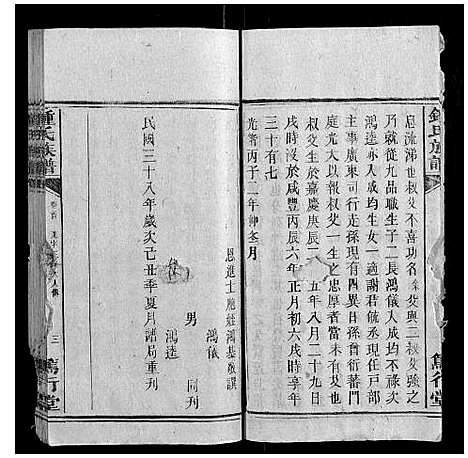 鍾氏族譜
篤行堂
息流涕也叔父不喜功名
乃就從九品職生子二長鴻儀入成均不祿次
鴻逵亦人成均生女一適謝君毓丞現任戶部
主事廣東司行走孫現有四異日孫曾衍蕃門
庭光大以報叔父一生之忠厚者當未有艾也
叔父生於嘉慶庚辰 五年八月二十九日
戌時沒於咸豐丙辰六年正月初六戌時享年
三十有七
光者丙子二年仲冬月
恩進士
鴻儀
男 同刊
鴻逵
民國三十八年歲次己丑季夏月譜局重刊
鍾氏族譜
三
篤行堂